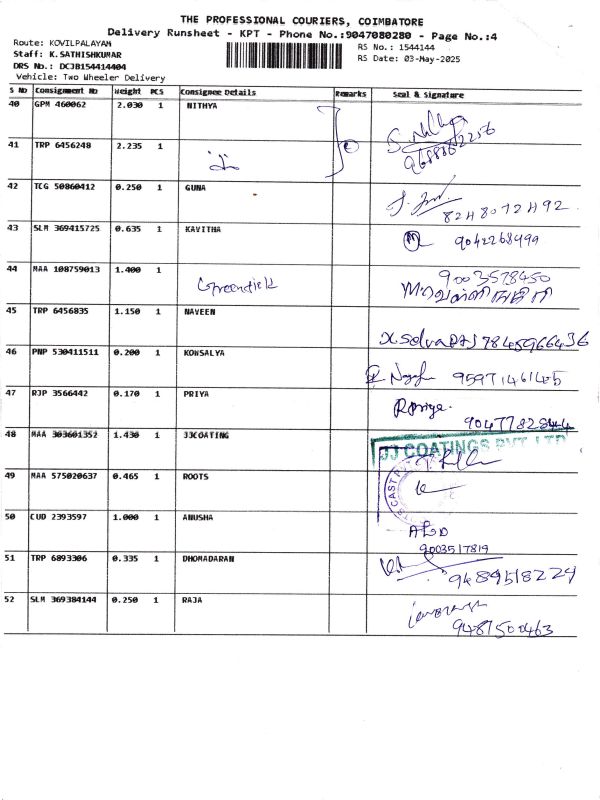 THE PROFESSIONAL COURIERS, COIMBATORE
Delivery Runsheet - KPT - Phone No.:9047080280 - Page No.:4
Route: KOVILPALAYAM
Staff: K.SATHISHKUMAR
DRS No.: DCJB154414404
Vehicle: Two Wheeler Delivery
RS No.: 1544144
RS Date: 03-May-2025
S No Consignment No Weight PCS Consignee Details Remarks Seal & Signature
40 GPM 460062 2.030 1 NITHYA
41 TRP 6456248 2.235 1
42 TCG 50860412 0.250 1 GUNA 8248072492
43 SLM 369415725 0.635 1 KAVITHA 9042268499
44 MAA 108759013 1.400 1 Greenfield 9003578450
45 TRP 6456835 1.150 1 NAVEEN 7845966436
46 PNP 530411511 0.200 1 KOWSALYA 95971461405
47 RJP 3566442 0.170 1 PRIYA R.Priya. 9047782844
48 MAA 303601352 1.430 1 JJCOATING JJ COATINGS PVT. LTD
49 MAA 575020637 0.465 1 ROOTS
50 CUD 2393597 1.000 1 ANUSHA 9003517819
51 TRP 6893306 0.335 1 DHOMADARAN 9489518224
52 SLM 369384144 0.250 1 RAJA 9487500463